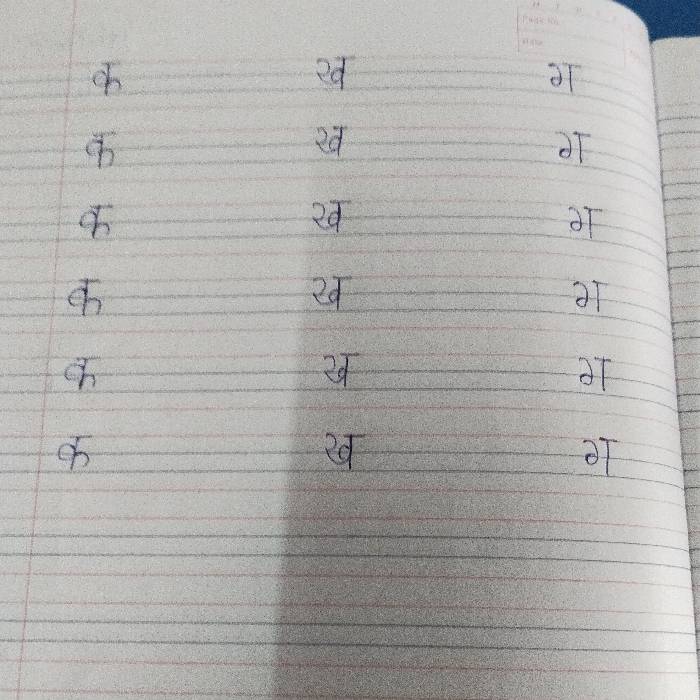 Page No.
Date
क ख ग
क ख ग
क ख ग
क ख ग
क ख ग
क ख ग